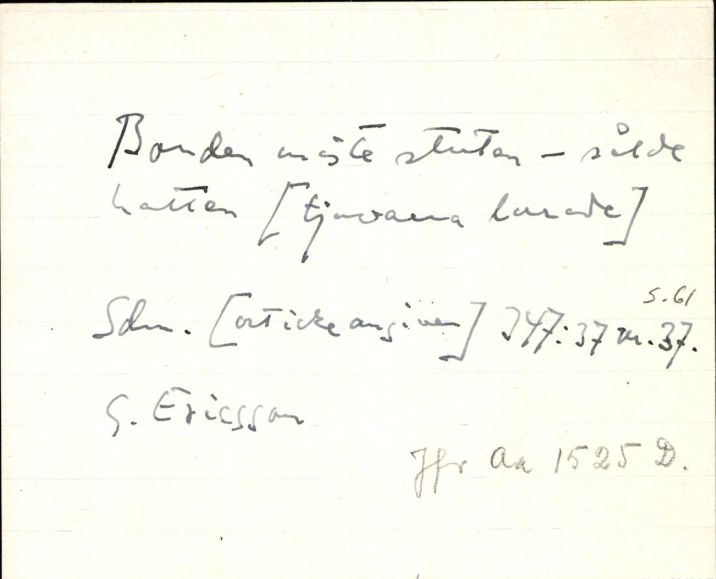 Bonden miste stuten – sålde
hatten [tjuvarna lurade]
s. 61
Sdm. [ort icke angiven] 347:37 nr. 37.
G. Ericsson
Jfr Aa 1525 D.